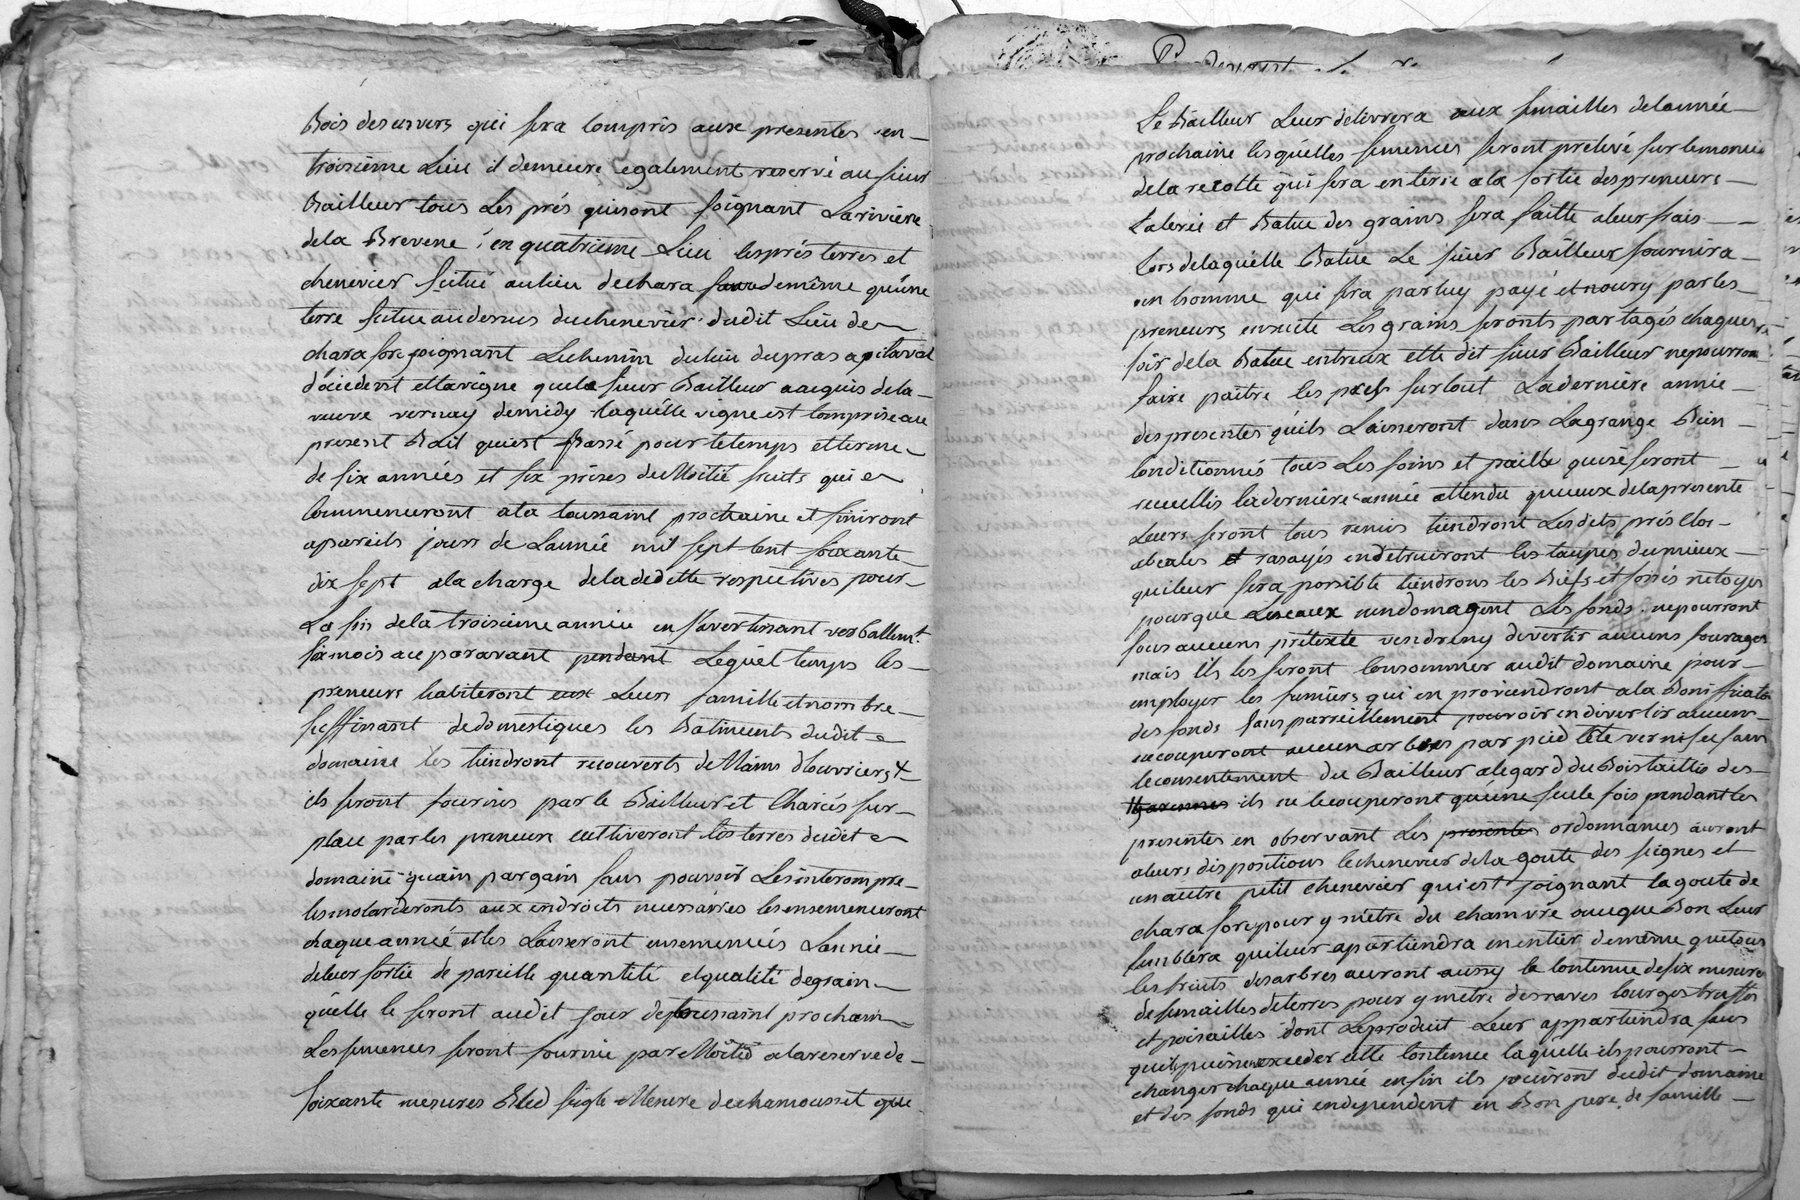 Bois des envers qui sera compris aux presentes en
troisième Lieu il demeure egalement reservé au sieur
Bailleur tous Les prés qui sont joignant La rivière
de la Brevene, en quatrieme Lieu les prés terres et
chenevier situé au lieu de chara demême qu'une
terre situe au dessus du chenevier dudit Lieu de
chara fore joignant Le chemin du lieu du pras a
d'occident et la vigne que le sieur Bailleur a acquis de la
veuve vernay de midy laquelle vigne est comprise au
present Bail qui est Passé pour le temps et terme
de six années et six prises de Moitié fruits qui
commenceront a la toussaint prochaine et finiront
a pareils jours de L'année mil sept cent soixante
dix sept a la charge de la dedette respectives pour
La fin de la troisieme année en s'avertissant verballemt.
six mois au paravant pendant Lequel temps les
preneurs habiteront eux Leurs famille et nombre
suffisant de domestiques les Batiments dudit
domaine les tiendront recouverts de Mains d'ouvriers
ils seront fournis par le Bailleur et Chariés sur
place par les preneurs cultiveront les terres dudit
domaine guain par gain sans pouvoir Les interompre
les molarderonts aux endroits necessaires les ensemenceront
chaque année et les Laisseront ensemencés L'année
de leur sortie de pareille quantité et qualité de grain
qu'elle le seront au dit jour de toussaint prochain
Les semences seront fournie par Moitié a la reserve de
soixante mesures Bled seigle Mesure de chamousset que
Le Bailleur Leur delivrera aux semailles de l'année
prochaine lesquelles semences seront prélevé sur le monceau
de la recolte qui sera en terre a la sortie des preneurs
La levée et Batue des grains sera faitte a leur frais
Lors de laquelle Batue Le sieur Bailleur fournira
un homme qui sera par luy payé et noury par les
preneurs ensuite Les grains seronts partagés chaque
soir de la Batue entreux et le dit sieur Bailleur ne pourront
faire paître les prés surtout La dernière année
des presentes qu'ils Laisseront dans La grange Bien
conditionnés tous Les foins et paille qui se seront
recueillis la dernière année attendu que ceux de la presente
Leurs seront tous remis tiendront Lesdits prés Clos
et rasayés en detruiront les taupes du mieux
qui leur sera possible tiendrons les Biefs et fossés netoyés
pour que Les eaux n'endomagent Les fonds ne pourront
sous aucuns pretexte vendre ny divertir aucuns fourages
mais ils les feront consommer audit domaine pour
employer les fumiers qui en proviendront a la Boniffication
des fonds sans pareillement pouvoir en divertir aucun
ne couperont aucun arbres par pied tête verni sec sans
le consentement du Bailleur a legard du Bois taillis des
ils ne le couperont qu'une seule fois pendant les
presentes en observant Les presentes ordonnances auront
a leurs dispositions le chenevier de la goute des seignes et
un autre petit chenevier qui est joignant la goute de
chara fore pour y mettre du chamvre ou ce que Bon Leur
semblera qui leur apartiendra en entier demême que tous
les fruits des arbres auront aussy la contenue de six mesures
de semailles de terres pour y mettre des raves courges truffes
et poisailles dont Le produit Leur appartiendra sans
quils puissent exceder cette contenue laquelle ils pourront
changer chaque année enfin ils jouiront dudit domaine
et des fonds qui en dependent en Bon pere de famille